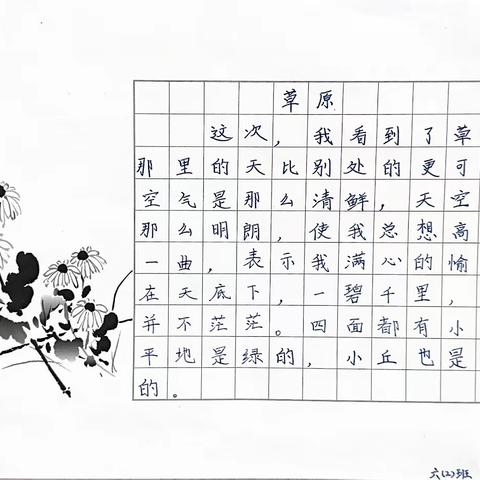 草原
这次，我看到了草
那里的天比别处的更可
空气是那么清鲜，天空
那么明朗，使我总想高
一曲，表示我满心的愉
在天底下，一碧千里，
并不茫茫。四面都有小
平地是绿的，小丘也是
的。
六(2)班